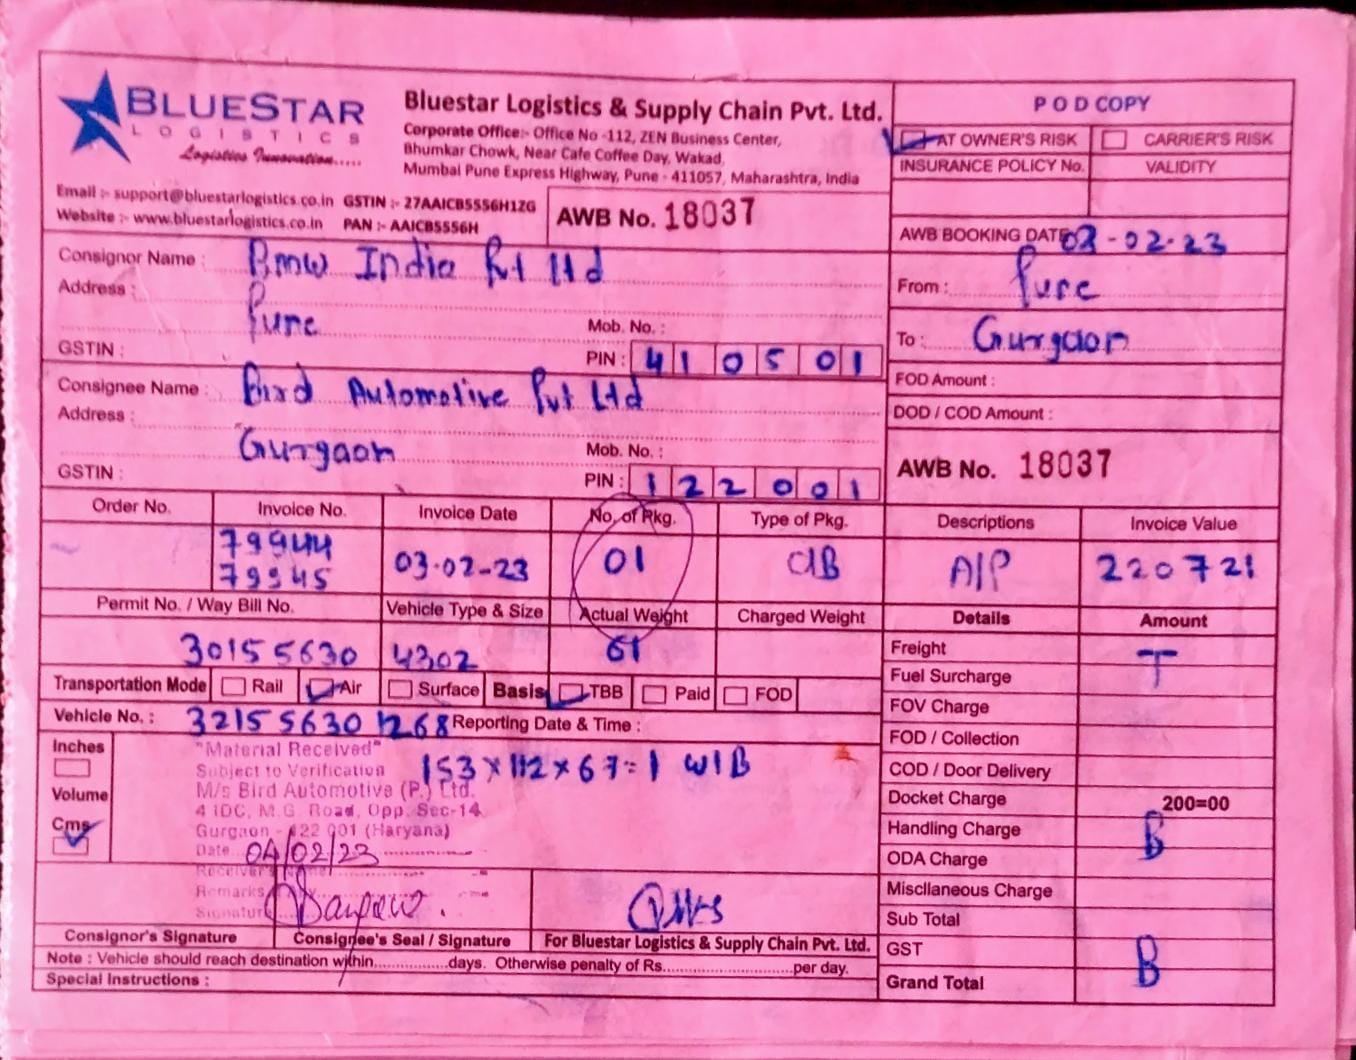 BLUESTAR
LOGISTICS
Logistics Innovation.....
Bluestar Logistics & Supply Chain Pvt. Ltd.
Corporate Office:- Office No -112, ZEN Business Center,
Bhumkar Chowk, Near Cafe Coffee Day, Wakad,
Mumbai Pune Express Highway, Pune - 411057, Maharashtra, India
Email :- support@bluestarlogistics.co.in GSTIN :- 27AAICB5556H1ZG
Website :- www.bluestarlogistics.co.in PAN :- AAICB5556H
AWB No. 18037
POD COPY
AT OWNER'S RISK CARRIER'S RISK
INSURANCE POLICY No. VALIDITY
AWB BOOKING DATE 03-02-23
From : Pune
To : Gurgaon
FOD Amount :
DOD / COD Amount :
AWB No. 18037
Consignor Name : Bmw India Pvt Ltd
Address :
Pune Mob. No. :
GSTIN : PIN : 410501
Consignee Name : Bird Automotive Pvt Ltd
Address :
Gurgaon Mob. No. :
GSTIN : PIN : 122001
Order No. Invoice No. Invoice Date No. of Pkg. Type of Pkg. Descriptions Invoice Value
79944
79945 03-02-23 01 C/B A/P 220721
Permit No. / Way Bill No. Vehicle Type & Size Actual Weight Charged Weight Details Amount
30155630 4302 61
Transportation Mode Rail Air Surface Basis TBB Paid FOD
Vehicle No. : 32155630 1268 Reporting Date & Time :
Inches
Volume
Cms
153 x 112 x 67 = 1 W/B
"Material Received"
Subject to Verification
M/s Bird Automotive (P.) Ltd.
4 IDC, M.G. Road, Opp. Sec-14
Gurgaon - 122 001 (Haryana)
Date 04/02/23
Receiver's Name
Remarks
Signature
Consignor's Signature Consignee's Seal / Signature For Bluestar Logistics & Supply Chain Pvt. Ltd.
Note : Vehicle should reach destination within..................days. Otherwise penalty of Rs................................per day.
Special Instructions :
Freight T
Fuel Surcharge
FOV Charge
FOD / Collection
COD / Door Delivery
Docket Charge 200=00
Handling Charge B
ODA Charge
Miscllaneous Charge
Sub Total
GST B
Grand Total